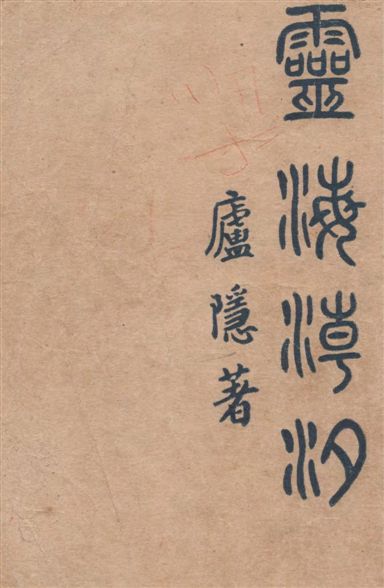 靈海潮汐
廬隱著